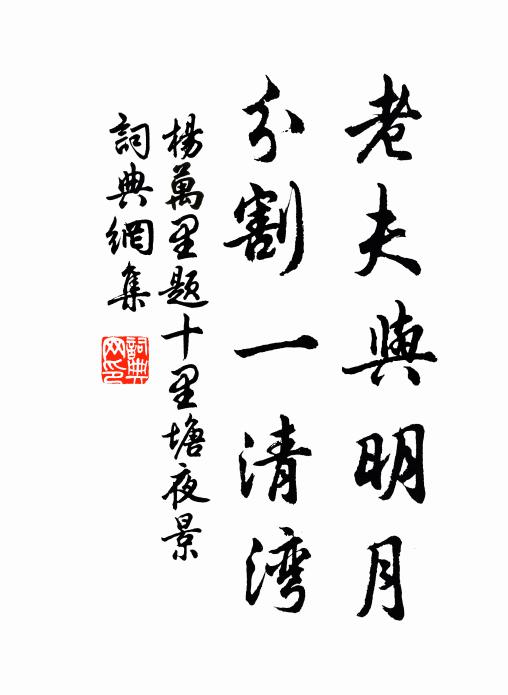 老夫與明月
分割一清湾
楊萬里题十里塘夜景
詞典網集
詞典網印